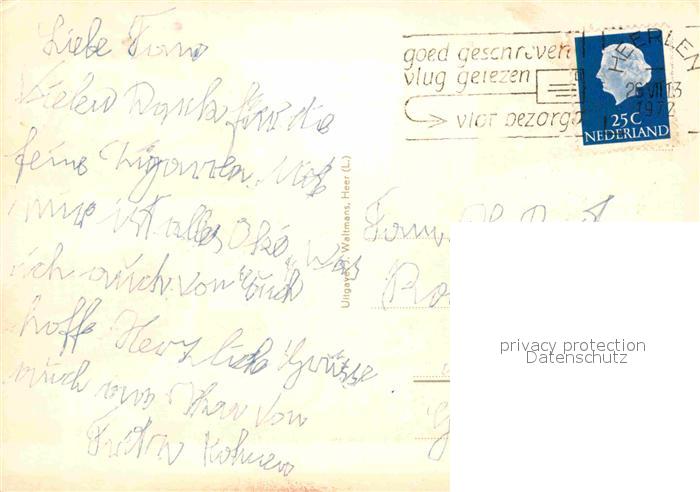 Liebe Fam
Vielen Dank für die
feine Zigarren. Mit
mir ist alles Oke, was
ich auch von Euch
hoffe Herzlich Grüsse
auch von
Kohnen
Fam.
goed geschreven
vlug gelezen
vlot bezorgd
HEERLEN
1972
25C
NEDERLAND
Uitgave: Waltmans, Heer (L.)
privacy protection
Datenschutz